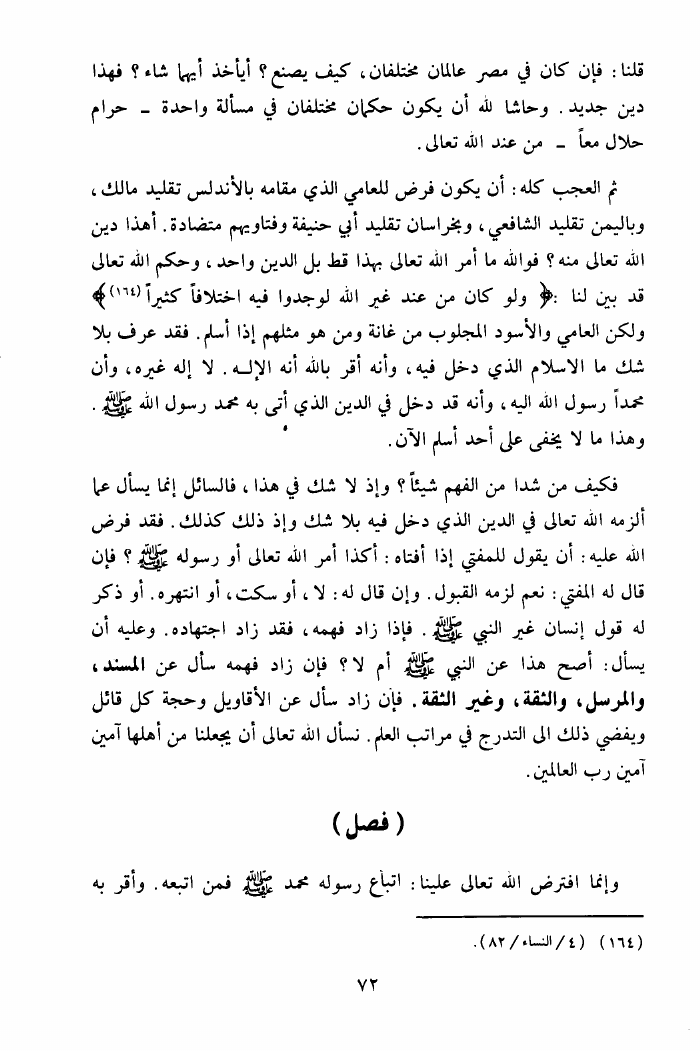 قلنا: فإن كان في مصر عالمان مختلفان، كيف يصنع؟ أيأخذ أيهما شاء؟ فهذا
دين جديد. وحاشا لله أن يكون حكمان مختلفان في مسألة واحدة - حرام
حلال معاً - من عند الله تعالى.
ثم العجب كله: أن يكون فرض للعامي الذي مقامه بالأندلس تقليد مالك،
وباليمن تقليد الشافعي، وبخراسان تقليد أبي حنيفة وفتاويهم متضادة. أهذا دين
الله تعالى منه؟ فوالله ما أمر الله تعالى بهذا قط بل الدين واحد، وحكم الله تعالى
قد بين لنا: ﴿ ولو كان من عند غير الله لوجدوا فيه اختلافاً كثيراً (١٦٤) ﴾
ولكن العامي والأسود المجلوب من غانة ومن هو مثلهم إذا أسلم. فقد عرف بلا
شك ما الاسلام الذي دخل فيه، وأنه أقر بالله أنه الإلـه. لا إله غيره، وأن
محمداً رسول الله اليه، وأنه قد دخل في الدين الذي أتى به محمد رسول الله ﷺ.
وهذا ما لا يخفى على أحد أسلم الآن.
فكيف من شدا من الفهم شيئاً؟ وإذ لا شك في هذا، فالسائل إنما يسأل عما
ألزمه الله تعالى في الدين الذي دخل فيه بلا شك وإذ ذلك كذلك. فقد فرض
الله عليه: أن يقول للمفتي إذا أفتاه: أكذا أمر الله تعالى أو رسوله ﷺ؟ فإن
قال له المفتي: نعم لزمه القبول. وإن قال له: لا، أو سكت، أو انتهره. أو ذكر
له قول إنسان غير النبي ﷺ. فإذا زاد فهمه، فقد زاد اجتهاده. وعليه أن
يسأل: أصح هذا عن النبي ﷺ أم لا؟ فإن زاد فهمه سأل عن المسند،
والمرسل، والثقة، وغير الثقة. فإن زاد سأل عن الأقاويل وحجة كل قائل
ويفضي ذلك الى التدرج في مراتب العلم. نسأل الله تعالى أن يجعلنا من أهلها آمين
آمين رب العالمين.
(فصل)
وإنما افترض الله تعالى علينا: اتباع رسوله محمد ﷺ فمن اتبعه. وأقر به
(١٦٤) (٤/النساء/٨٢).
٧٢